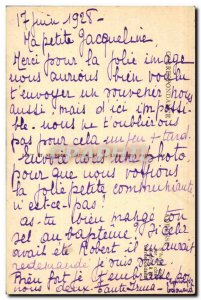 17 juin 1928 -
Ma petite Jacqueline
Merci pour la jolie image
nous aurions bien voulu
t'envoyer un souvenir nous
aussi; mais d'ici impossi-
ble. nous ne t'oublierons
pas pour cela un peu + tard.
envoie nous une photo.
pour que nous voyions
la jolie petite communiante
n'est-ce-pas!
as-tu bien mangé ton
sel au baptême? si cela
avait été Robert il en aurait
redemandé je vous
bien fort je t'embrasse pour
nous deux